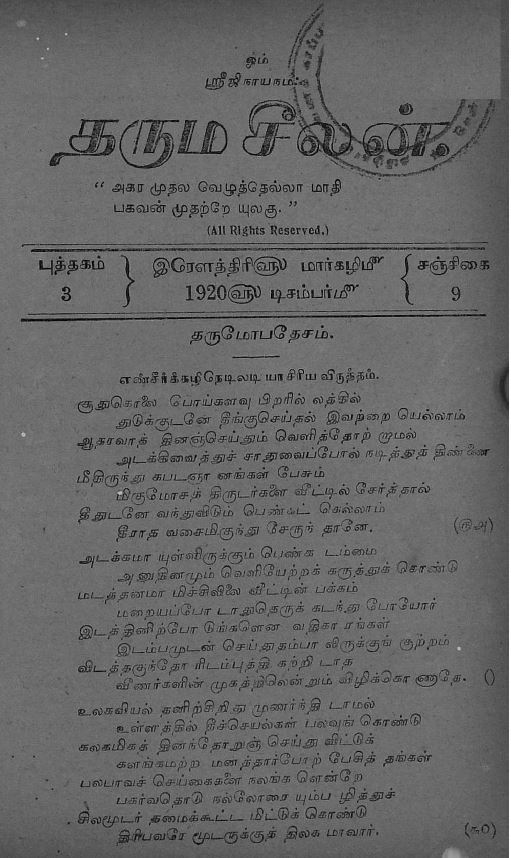 ஓம்
ஸ்ரீஜிநாயநம:
தரும சீலன்.
“ அகர முதல வெழுத்தெல்லா மாதி
பகவன் முதற்றே யுலகு. ”
(All Rights Reserved.)
புத்தகம் 3
இரௌத்திரி௵ மார்கழிமீ 1920௵ டிசம்பர்மீ
சஞ்சிகை 9
தருமோபதேசம்.
எண்சீர்க்கழிநெடிலடி யாசிரிய விருத்தம்.
சூதுகொலை பொய்களவு பிறரில் லத்தில்
துடுக்குடனே தீங்குசெய்தல் இவற்றை யெல்லாம்
ஆதரவாத் தினஞ்செய்தும் வெளித்தோற் றாமல்
அடக்கிவைத்துச் சாதுவைப்போல் நடித்துத் திண்ணை
மீதிருந்து கபடஞா னங்கள் பேசும்
மிகுமோசத் திருடர்களை வீட்டில் சேர்த்தால்
தீதுடனே வந்துவிடும் பெண்கட் கெல்லாம்
தீராத வசைமிகுந்து சேருந் தானே. (௫௮)
அடக்கமா யுள்ளிருக்கும் பெண்க டம்மை
அனுதினமும் வெளியேற்றக் கருத்துக் கொண்டு
மடத்தனமா மிச்சிவிலை வீட்டின் பக்கம்
மறையப்போ டாதுதெருக் கடந்து போயோர்
இடத்தினிற்போ டுங்களென வதிகா ரங்கள்
இடம்பமுடன் செய்துதம்பா லிருக்குங் குற்றம்
விடத்தகுந்தோ ரிடம்புத்தி கற்றி டாத
வீணர்களின் முகத்திலென்றும் விழிக்கொ ணாதே. ()
உலகவியல் தனிற்சிறிது முணர்ந்தி டாமல்
உள்ளத்தில் நீச்செயல்கள் பலவுங் கொண்டு
கலகமிகத் தினந்தோறுஞ் செய்து விட்டுக்
களங்கமற்ற மனத்தார்போற் பேசித் தங்கள்
பலபாவச் செய்கைகளை நலங்க ளென்றே
பகர்வதொடு நல்லோரை யும்ப ழித்துச்
சிலமூடர் தமைக்கூட்ட மிட்டுக் கொண்டு
திரிபவரே மூடருக்குத் திலக மாவார். (௬௦)